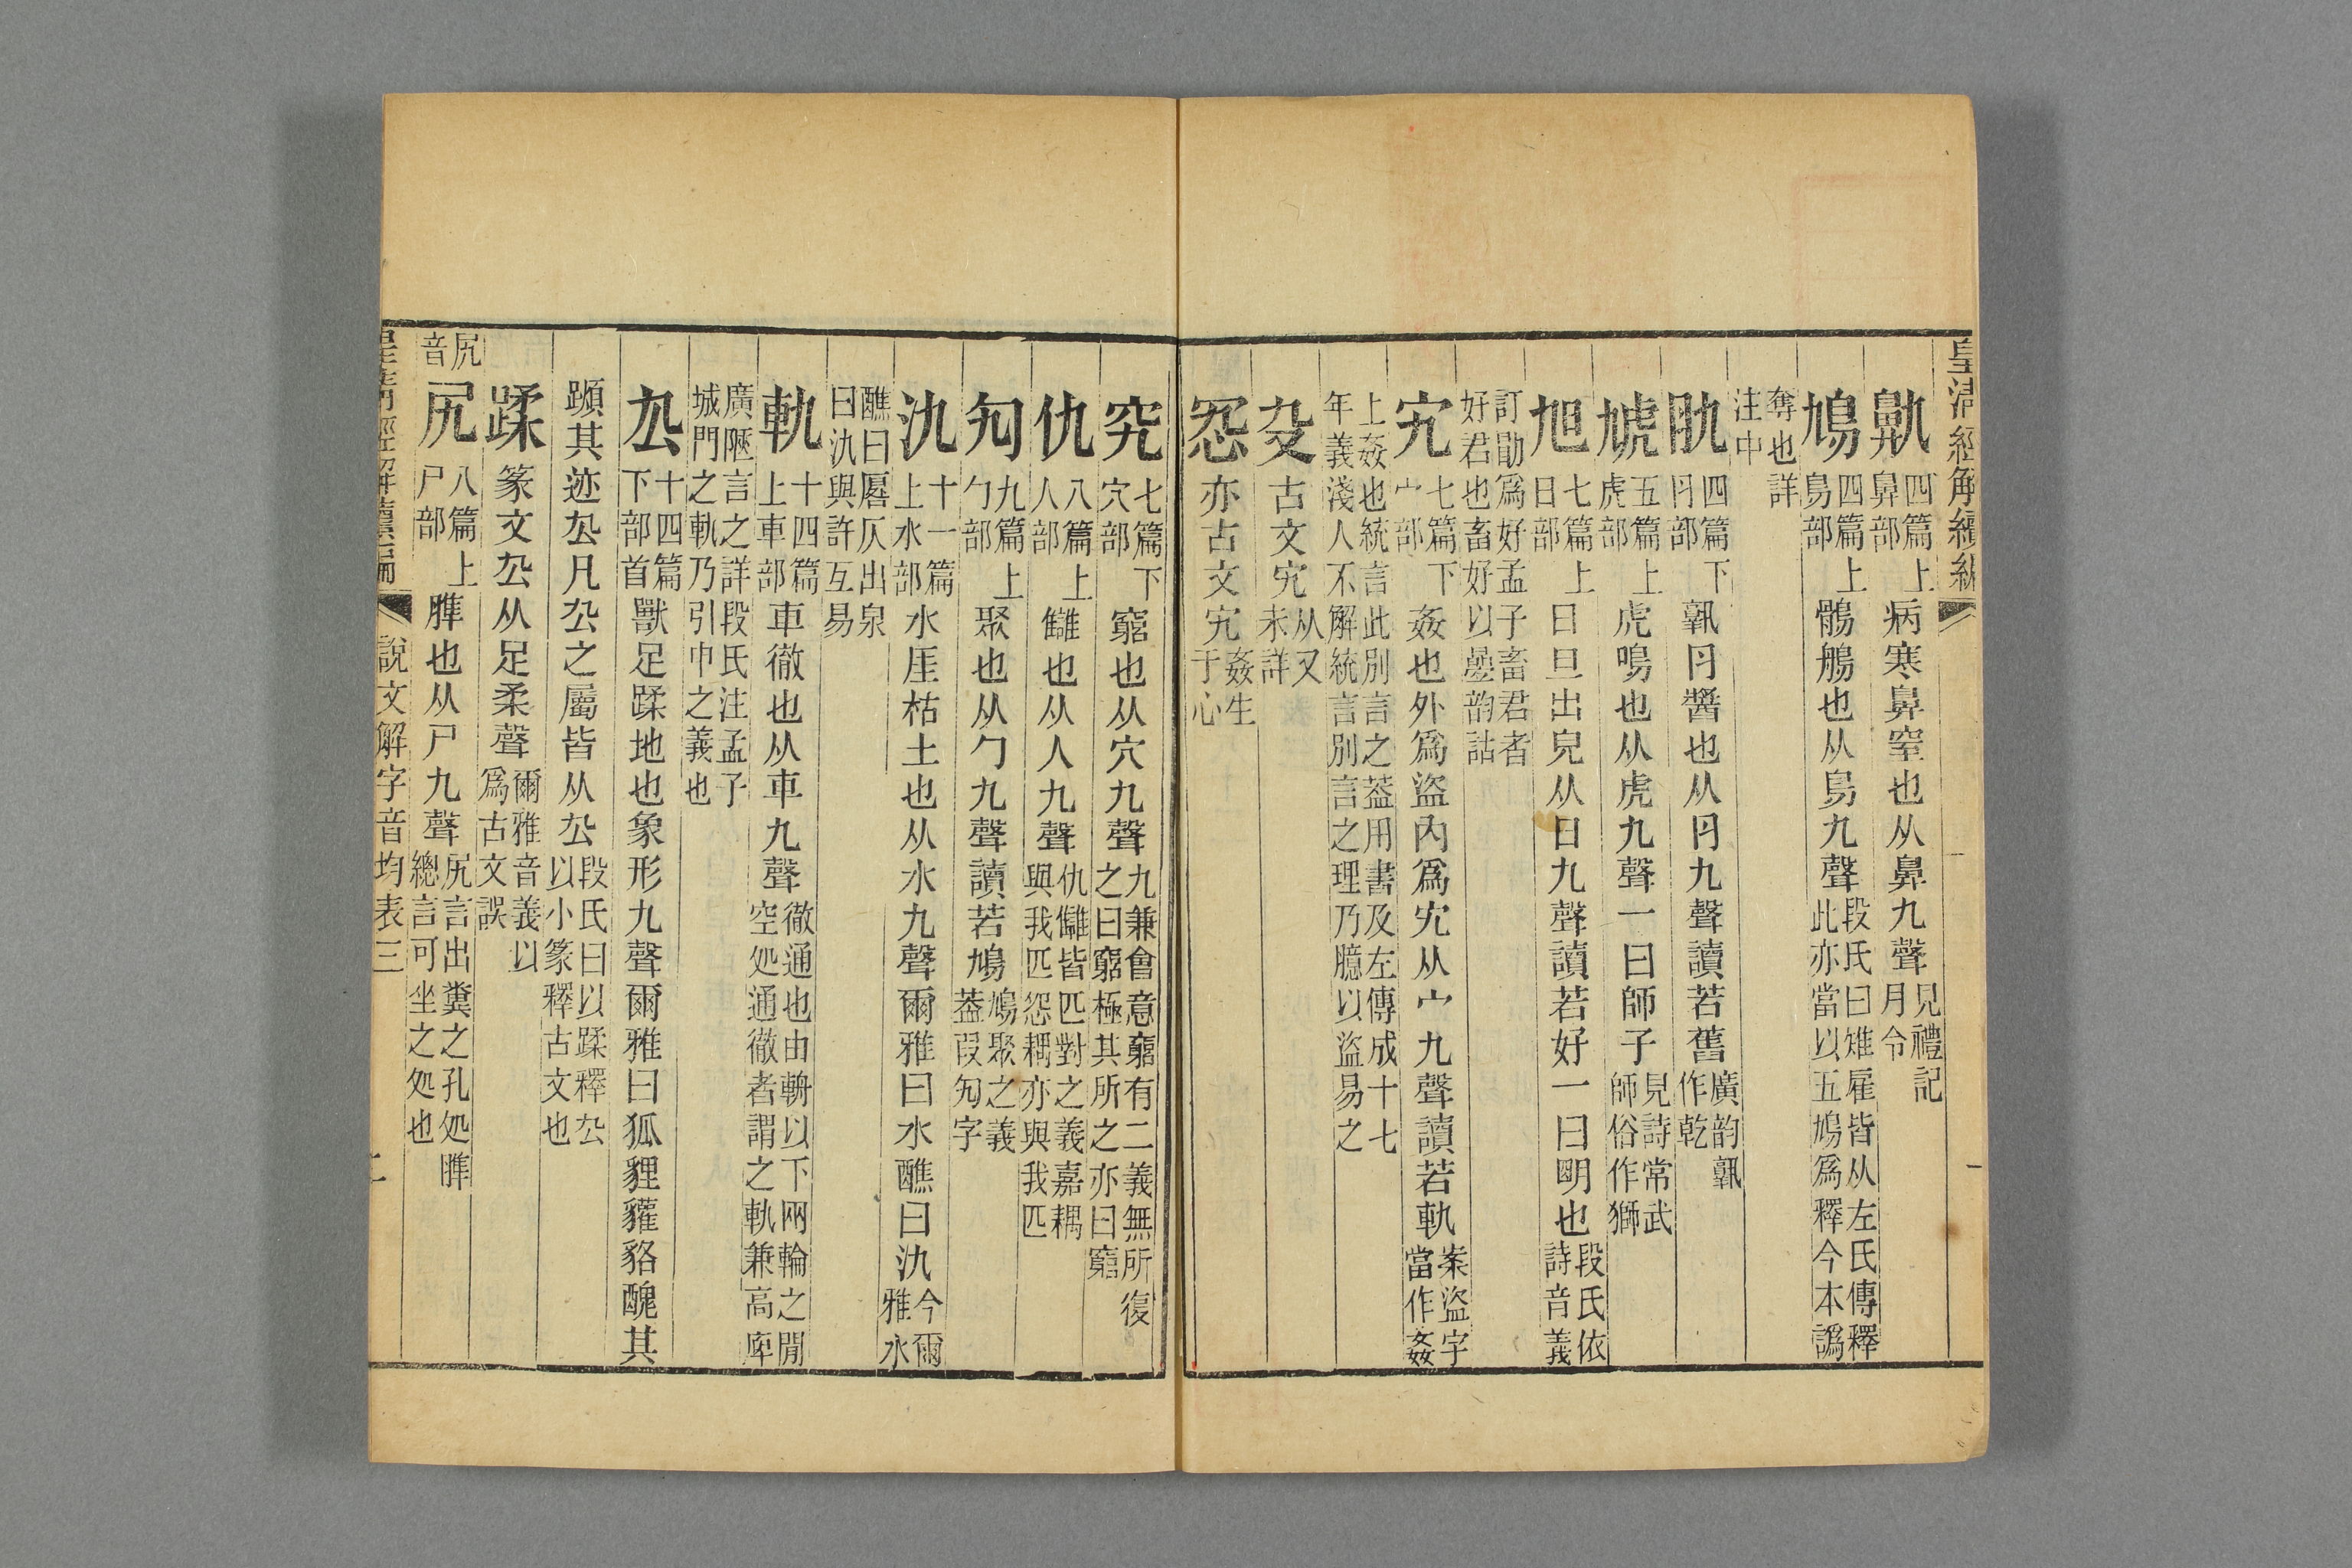 皇清經解續編
鼽四篇上鼻部病寒鼻窒也从鼻九聲見禮記月令
鳩四篇上鳥部鶻鵃也从鳥九聲段氏曰雉雇皆从左氏傳釋此亦當以五鳩爲釋今本譌
奪也詳注中
肍四篇下肉部孰肉醬也从肉九聲讀若舊廣韵孰作乾
虓五篇上虎部虎鳴也从虎九聲一曰師子見詩常武師俗作獅
旭七篇上日部日旦出皃从日九聲讀若好一曰明也段氏依詩音義
訂勖爲好孟子畜君者好君也畜好以曡韵詁
宄七篇下宀部姦也外爲盜內爲宄从宀九聲讀若軌案盜字當作姦
上姦也統言此別言之葢用書及左傳成十七年義淺人不解統言別言之理乃臆以盜易之
㕝古文宄从又未詳
㤝亦古文宄姦生于心
究七篇下穴部窮也从穴九聲九兼會意窮有二義無所復之曰窮極其所之亦曰窮
仇八篇上人部讎也从人九聲仇讎皆匹對之義嘉耦與我匹怨耦亦與我匹
勼九篇上勹部聚也从勹九聲讀若鳩鳩聚之義葢叚勼字
氿十一篇上水部水厓枯土也从水九聲爾雅曰水醮曰氿今爾雅水
醮曰厬仄出泉曰氿與許互易
軌十四篇上車部車徹也从車九聲徹通也由輈以下兩輪之閒空処通也通徹者謂之軌兼高庳
廣陿言之詳段氏注孟子城門之軌乃引中之義也
厹十四篇下部首獸足蹂地也象形九聲爾雅曰狐貍貛貉醜其
蹞其迹厹凡厹之屬皆从厹段氏曰以蹂釋厹以小篆釋古文也
蹂篆文厹从足柔聲爾雅音義以爲古文誤
尻音
尻八篇上尸部脽也从尸九聲尻言出糞之孔処脽總言可坐之処也
說文解字音均表三